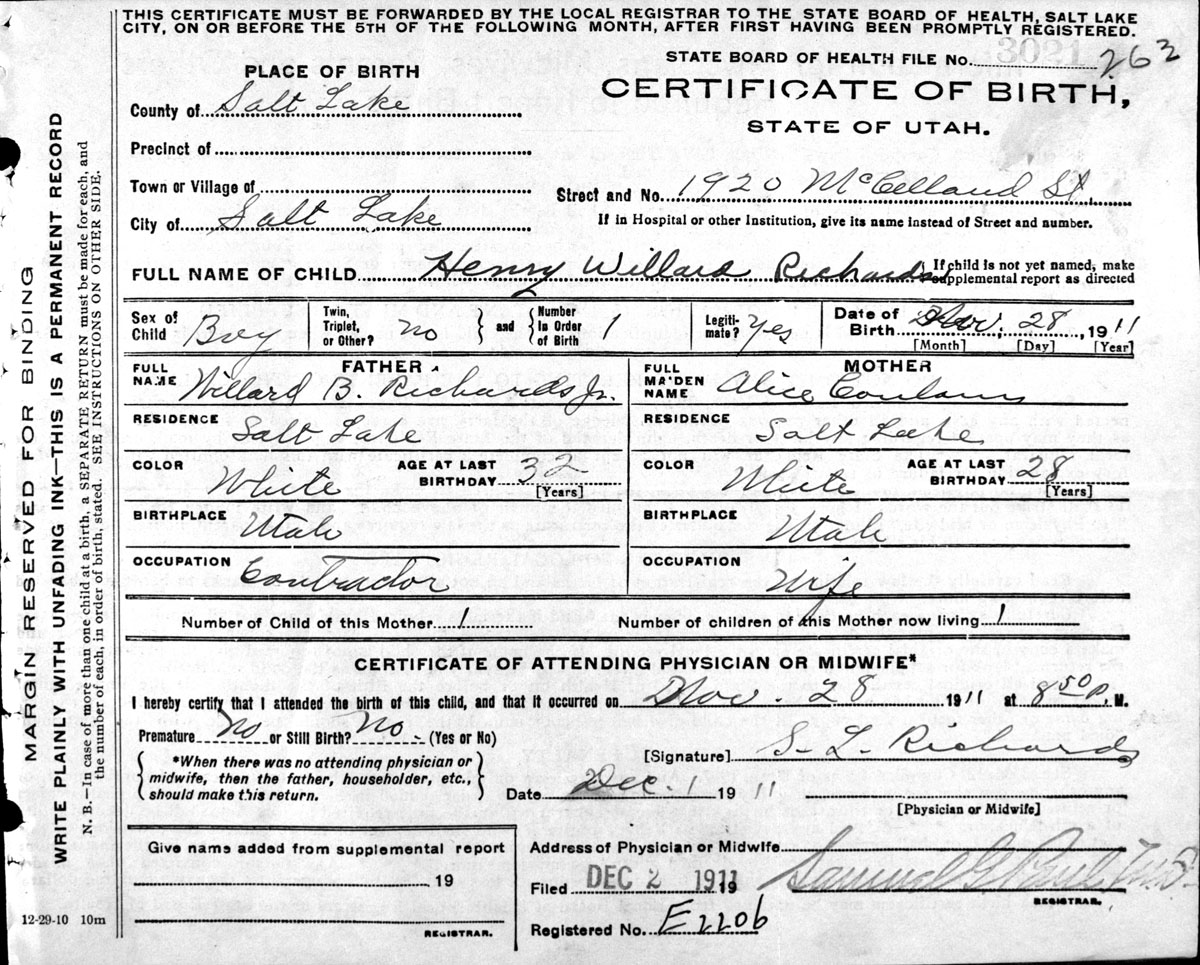 THIS CERTIFICATE MUST BE FORWARDED BY THE LOCAL REGISTRAR TO THE STATE BOARD OF HEALTH, SALT LAKE
CITY, ON OR BEFORE THE 5TH OF THE FOLLOWING MONTH, AFTER FIRST HAVING BEEN PROMPTLY REGISTERED.
STATE BOARD OF HEALTH FILE No. 3021 263
PLACE OF BIRTH
CERTIFICATE OF BIRTH,
STATE OF UTAH.
County of Salt Lake
Precinct of
Town or Village of
Street and No. 1920 McClelland St.
City of Salt Lake
If in Hospital or other Institution, give its name instead of Street and number.
FULL NAME OF CHILD Henry Willard Richards
If child is not yet named, make
supplemental report as directed
Sex of Child Boy
Twin, Triplet, or Other? no
and Number In Order of Birth 1
Legiti-mate? Yes
Date of Birth Nov. 28, 1911
[Month] [Day] [Year]
FATHER
MOTHER
FULL NAME Willard B. Richards Jr.
FULL MAIDEN NAME Alice
RESIDENCE Salt Lake
RESIDENCE Salt Lake
COLOR White AGE AT LAST BIRTHDAY 32 [Years]
COLOR White AGE AT LAST BIRTHDAY 28 [Years]
BIRTHPLACE Utah
BIRTHPLACE Utah
OCCUPATION Contractor
OCCUPATION Wife
Number of Child of this Mother 1
Number of children of this Mother now living 1
CERTIFICATE OF ATTENDING PHYSICIAN OR MIDWIFE*
I hereby certify that I attended the birth of this child, and that it occurred on Nov. 28 1911 at 8 50 P. M.
Premature No or Still Birth? No. (Yes or No)
[Signature] S. L. Richards
*When there was no attending physician or
midwife, then the father, householder, etc.,
should make this return.
Date Dec. 1 1911
[Physician or Midwife]
Give name added from supplemental report
19
REGISTRAR.
Address of Physician or Midwife
Filed DEC 2 1911 19
Samuel G. Paul M.D.
REGISTRAR.
Registered No. E2206
12-29-10 10m
MARGIN RESERVED FOR BINDING
WRITE PLAINLY WITH UNFADING INK—THIS IS A PERMANENT RECORD
N. B.—In case of more than one child at a birth, a SEPARATE RETURN must be made for each, and
the number of each, in order of birth, stated. SEE INSTRUCTIONS ON OTHER SIDE.